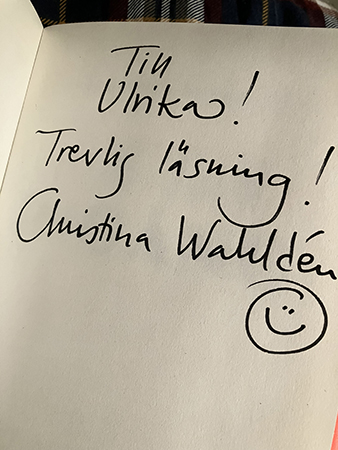 Till
Ulrika!
Trevlig läsning!
Christina Wahldén